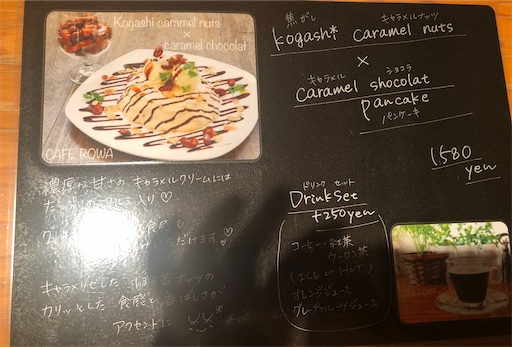 Kogashi caramel nuts
×
caramel chocolat
CAFE ROWA
焦がし キャラメルナッツ
kogashi* caramel nuts
×
キャラメル ショコラ
caramel shocolat
pancake
パンケーキ
1580
yen
濃厚な甘さの キャラメルクリームには
入り♡
食感も
だけます♡
キャラメリゼした ナッツの
カリッとした 食感と 香ばしさが
アクセントに
ドリンク セット
Drink set
+250yen
コーヒー 紅茶
ウーロン茶
(ICE or HOT)
オレンジジュース
グレープフルーツジュース